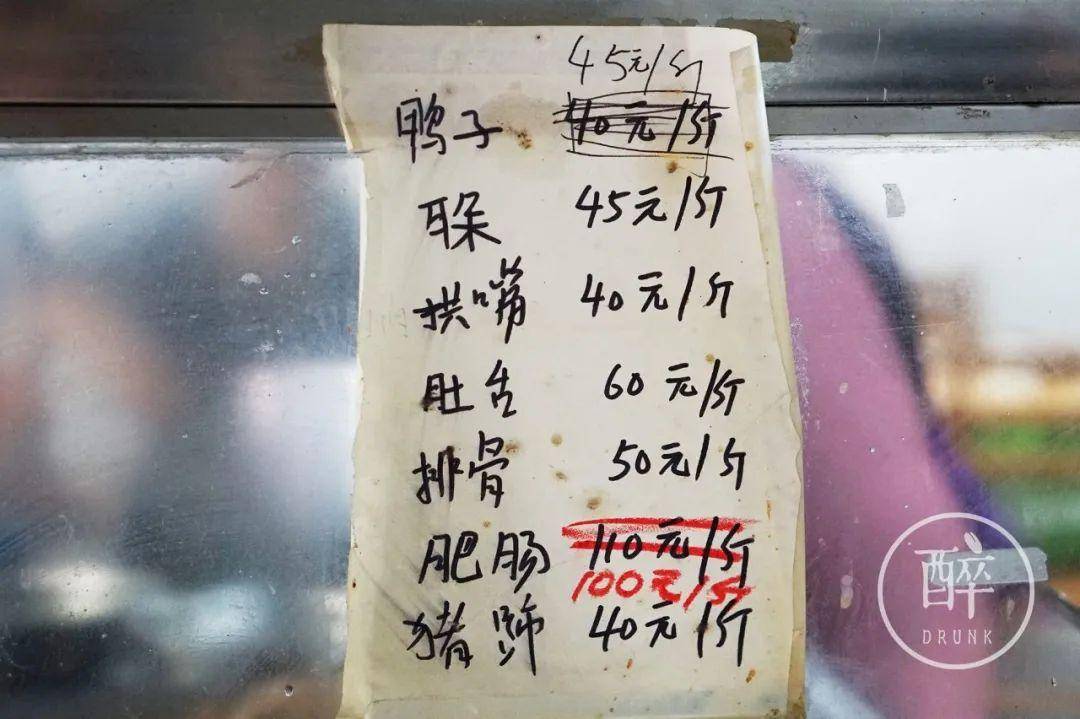 45元/斤
鸭子 40元/斤
耳朵 45元/斤
拱嘴 40元/斤
肚舌 60元/斤
排骨 50元/斤
肥肠 110元/斤
100元/斤
猪蹄 40元/斤
醉
DRUNK